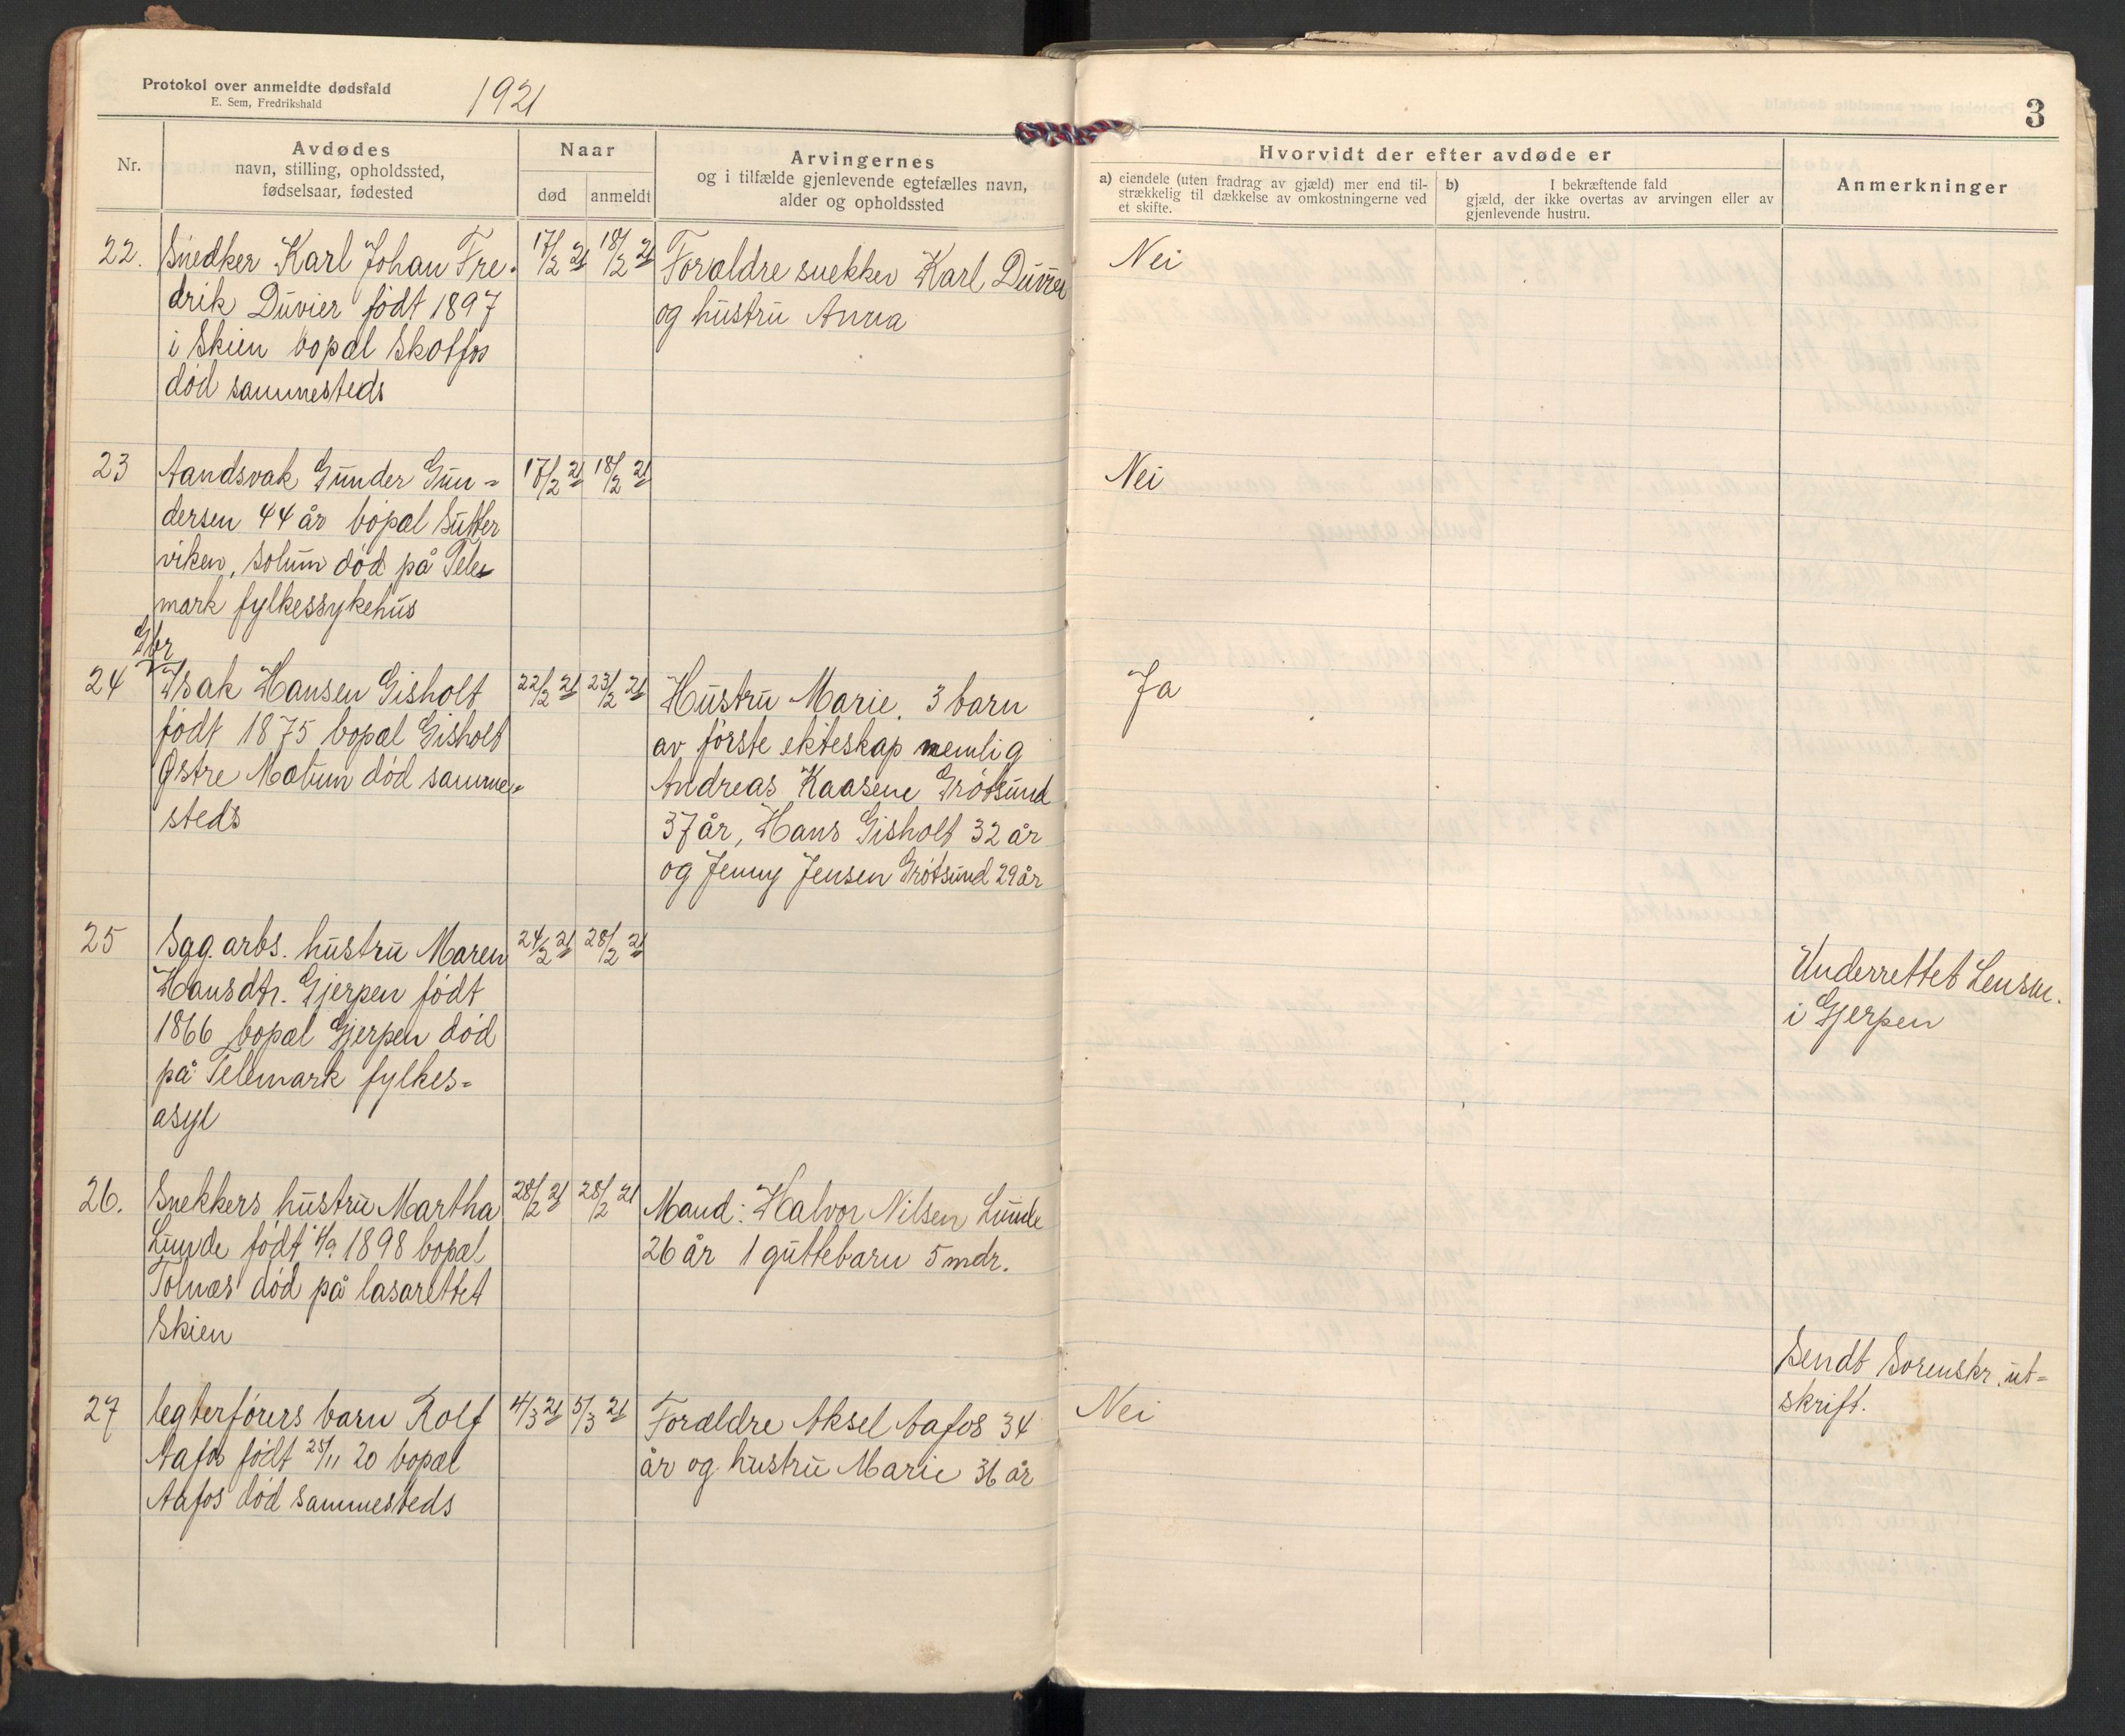 Protokol over anmeldte dødsfald
E. Sem, Fredrikshald
1921
3
Nr.
Avdødes
navn, stilling, opholdssted,
fødselsaar, fødested
Naar
død
anmeldt
Arvingernes
og i tilfælde gjenlevende egtefælles navn,
alder og opholdssted
Hvorvidt der efter avdøde er
a) eiendele (uten fradrag av gjæld) mer end til-
strækkelig til dækkelse av omkostningerne ved
et skifte.
b) I bekræftende fald
gjæld, der ikke overtas av arvingen eller av
gjenlevende hustru.
Anmerkninger
22.
Snedker Karl Johan Fre-
drik Duvier født 1897
i Skien bopæl Skotfos
død sammesteds
17/2 21
18/2 21
Forældre snekker Karl Duvier
og hustru Anna
Nei
23
Aandsvak Gunder Gun=
dersen 44 år bopæl Sutter
viken, Solum død på Tele
mark fylkessykehus
17/2 21
18/2 21
Nei
24
Gbr
Isak Hansen Gisholt
født 1875 bopæl Gisholt
Østre Mælum død samme-
steds
22/2 21
23/2 21
Hustru Marie. 3 barn
av første ekteskap nemlig
Andreas Kaasene Grøtsund
37 år, Hans Gisholt 32 år
og Jenny Jensen Grøtsund 29 år
Ja
25
Sag.arbs. hustru Maren
Hansdtr. Gjerpen født
1866 bopæl Gjerpen død
på Telemark fylkes=
asyl
24/2 21
28/2 21
Underrettet Lensm.
i Gjerpen
26.
Snekkers hustru Martha
Lunde født /9 1898 bopæl
Tolnæs død på lasarettet
Skien
28/2 21
28/2 21
Mand: Halvor Nilsen Lunde
26 år 1 guttebarn 5 mdr.
Sendt Sorenskr. ut=
skrift.
27
legterførers barn Rolf
Aafos født 25/11 20 bopæl
Aafos død sammesteds
4/3 21
5/3 21
Forældre Aksel Aafos 34
år og hustru Marie 36 år
Nei